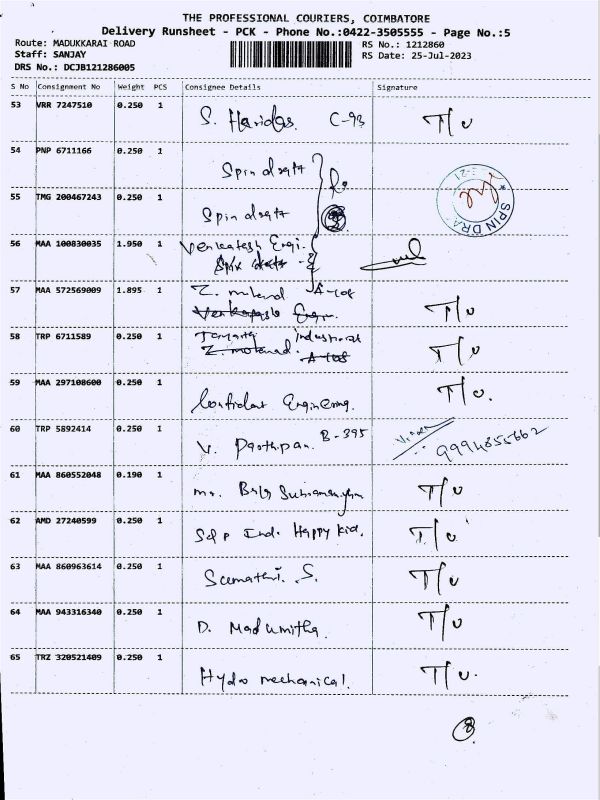 THE PROFESSIONAL COURIERS, COIMBATORE
Delivery Runsheet - PCK - Phone No.:0422-3505555 - Page No.:5
Route: MADUKKARAI ROAD
Staff: SANJAY
DRS No.: DCJB121286005
RS No.: 1212860
RS Date: 25-Jul-2023
S No Consignment No Weight PCS Consignee Details Signature
53 VRR 7247510 0.250 1 S. Haridas. C-93 T/U
54 PNP 6711166 0.250 1
55 TMG 200467243 0.250 1
SPIN DRA
56 MAA 100830035 1.950 1 Venkatesh Engi.
57 MAA 572569009 1.895 1 A-108 T/U
58 TRP 6711589 0.250 1 Industries T/U
59 MAA 297108600 0.250 1 Confident Engineering. T/U.
60 TRP 5892414 0.250 1 V. Parthipan. B-395 9994855662
61 MAA 860552048 0.190 1 T/U
62 AMD 27240599 0.250 1 Ind. Happy Kid. T/U
63 MAA 860963614 0.250 1 Sumathi. S. T/U
64 MAA 943316340 0.250 1 D. Madumitha. T/U
65 TRZ 320521409 0.250 1 Hydro mechanical. T/U.
8